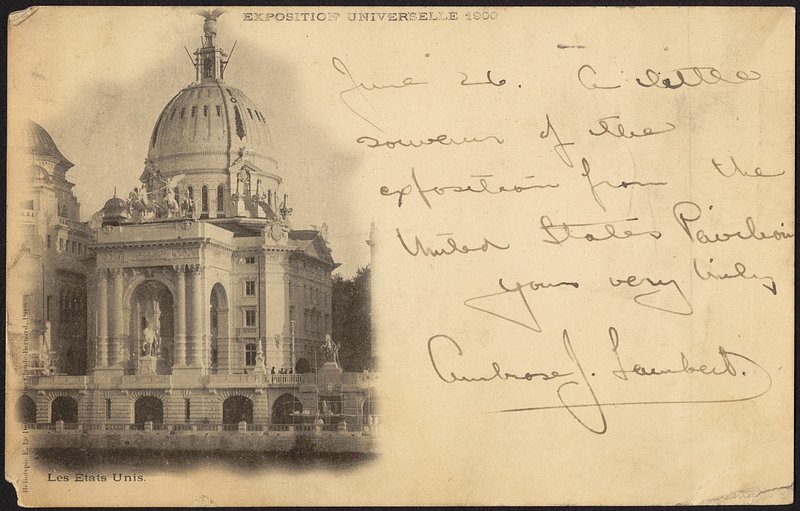 EXPOSITION UNIVERSELLE 1900
June 26. A little
souvenir of the
exposition from the
United States Pavilion
yours very truly
Ambrose J. Lambert.
Les Etats Unis.